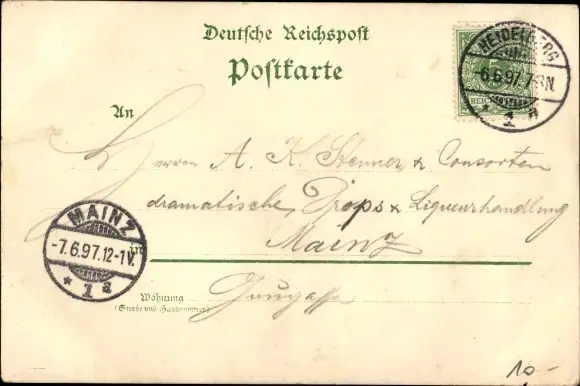 Deutsche Reichspost
Postkarte
HEIDELBERG
-6.6.97.7-8N.
* 1 a
5
REIC
An
Herren A. K. Stenner & Consorten
dramatische, Props & Liqueurhandlung
in Mainz
MAINZ
-7.6.97.12-1V.
* 1 a
Wohnung
(Straße und Hausnummer)
10-